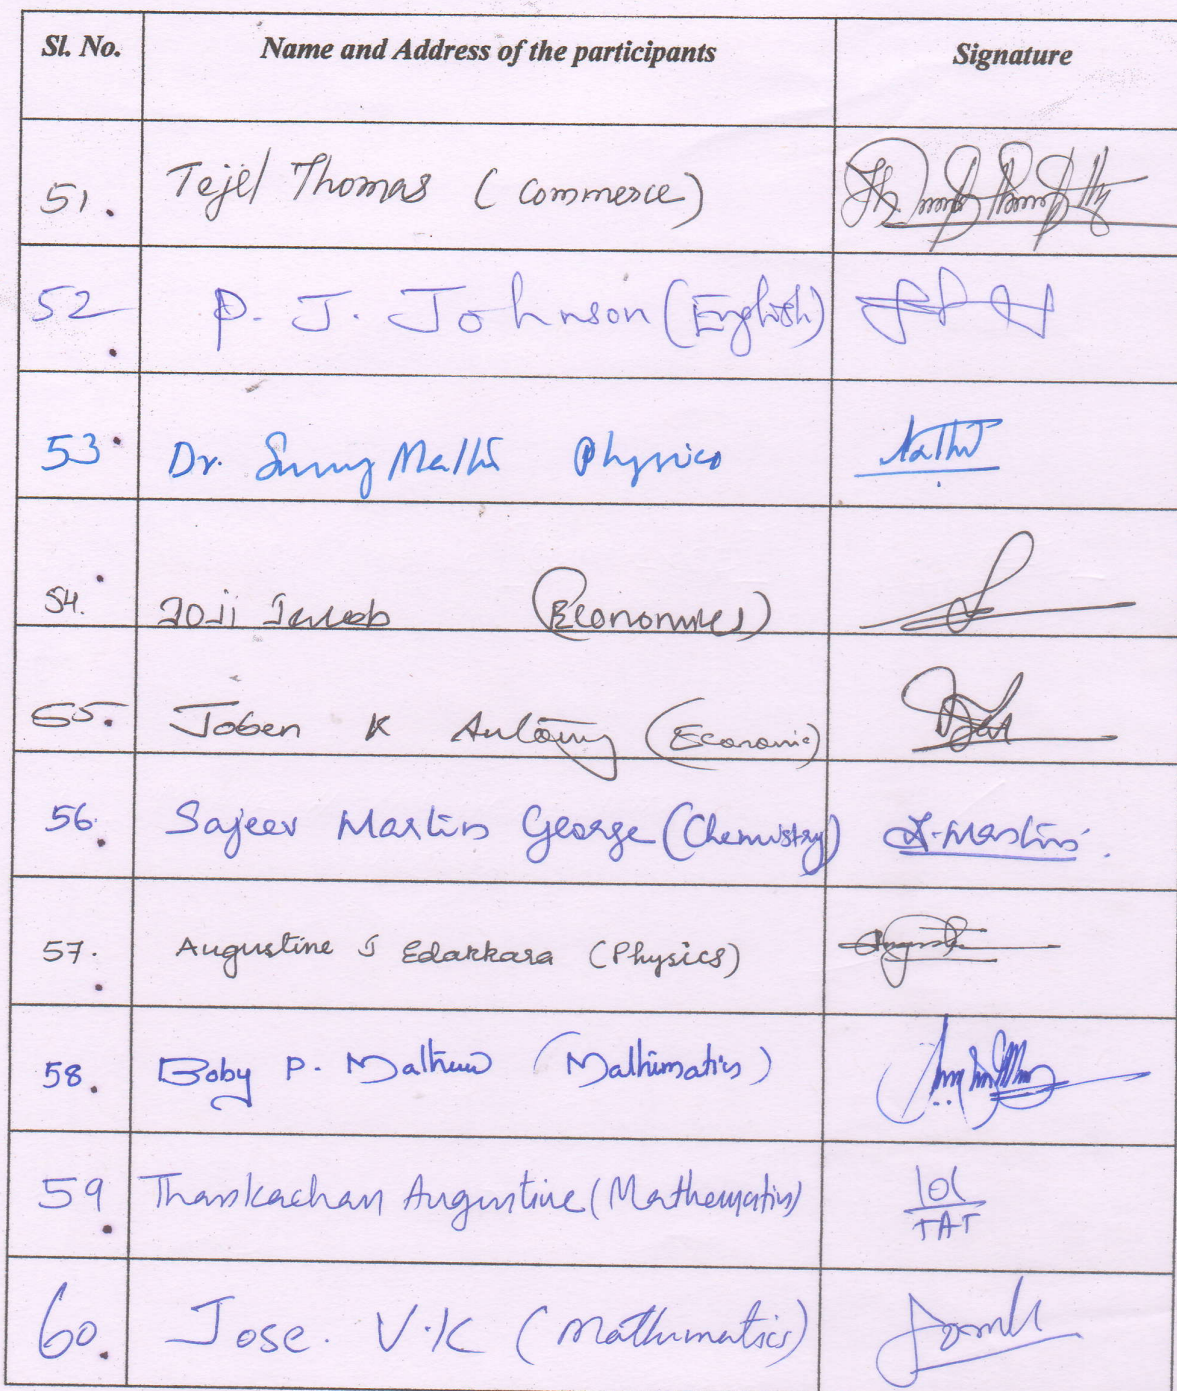 Sl. No. Name and Address of the participants Signature
51. Tejil Thomas (Commerce)
52. P. J. Johnson (English)
53. Dr. Sunny Mathew Physics
54. Joji Jacob (Economics)
55. Joben K Antony (Economic)
56. Sajeev Martin George (Chemistry) S. Martin
57. Augustine J Edakkara (Physics)
58. Boby P. Mathew (Mathematics)
59. Thankachan Augustine (Mathematics) TAT
60. Jose. V.K (Mathematics)